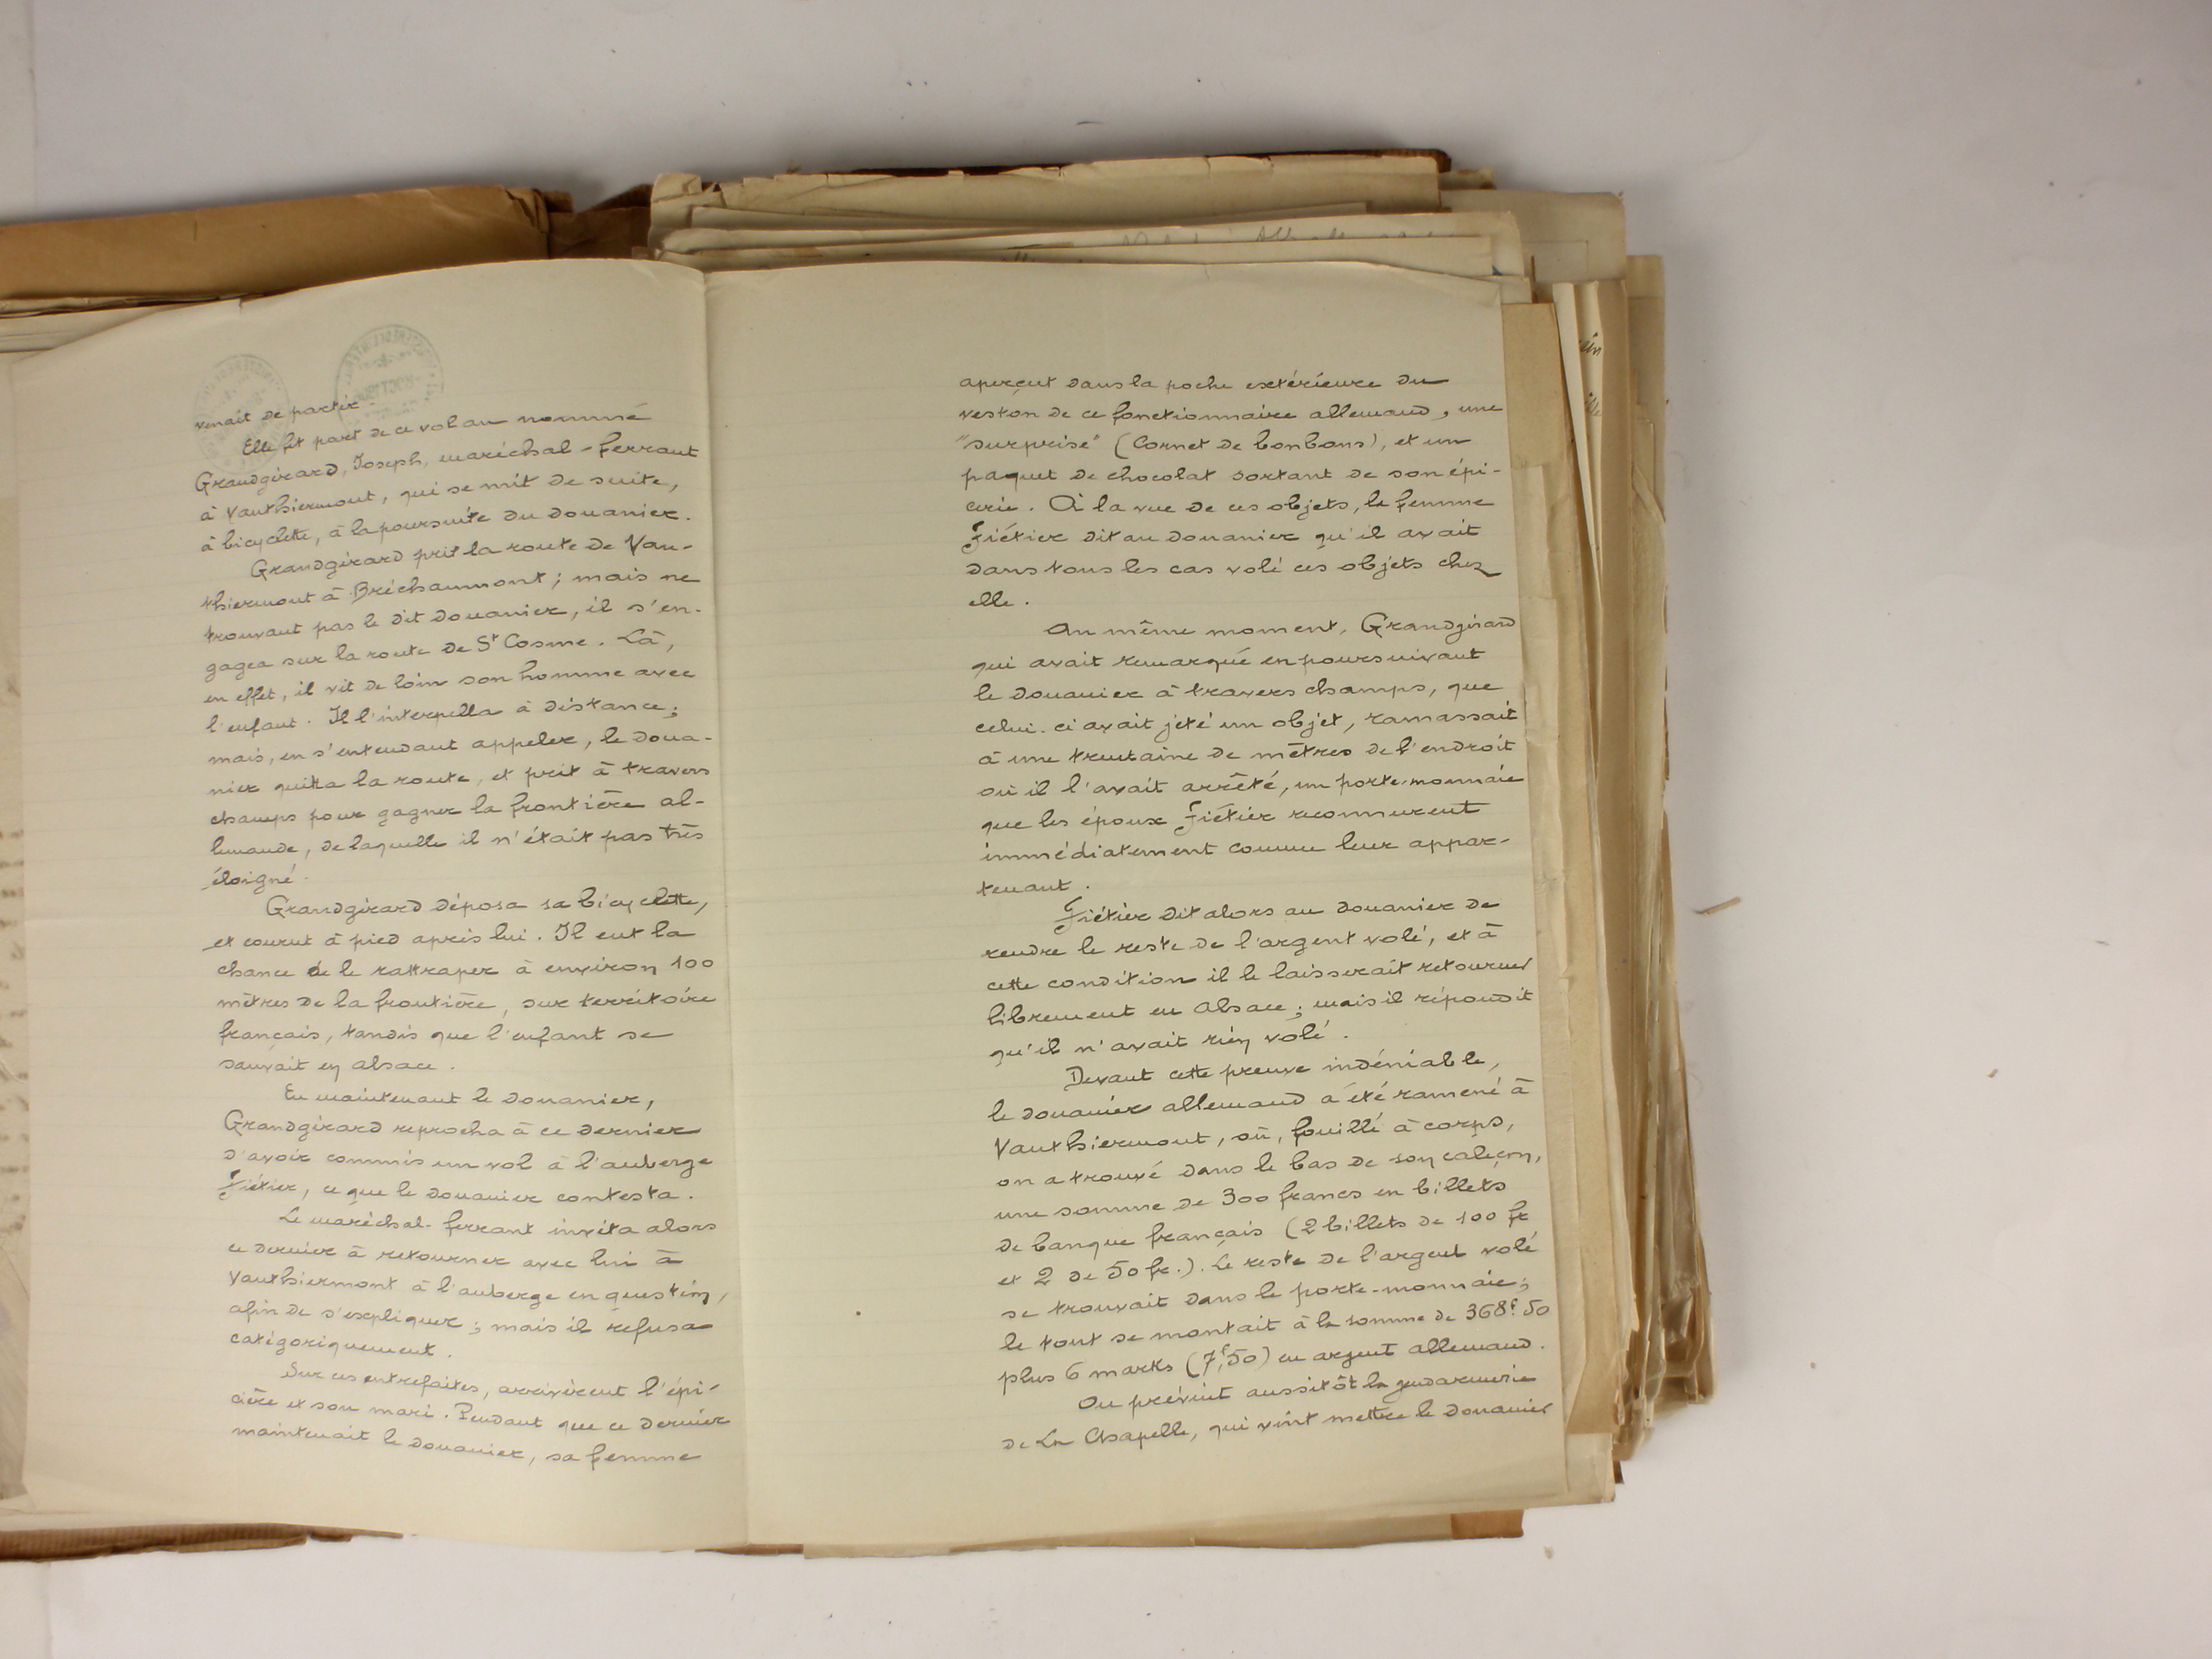 venait de partir.
Elle fit part de ce vol au nommé
Grandgirard, Joseph, maréchal-ferrant
à Vauthiermont, qui se mit de suite,
à bicyclette, à la poursuite du douanier.
Grandgirard prit la route de Vau-
thiermont à Bréchaumont; mais ne
trouvant pas le dit douanier, il s'en-
gagea sur la route de St Cosme. Là,
en effet, il vit de loin son homme avec
l'enfant. Il l'interpella à distance;
mais, en s'entendant appeler, le doua-
nier quitta la route, et prit à travers
champs pour gagner la frontière al-
lemande, de laquelle il n'était pas très
éloigné.
Grandgirard déposa sa bicyclette,
et courut à pied après lui. Il eut la
chance de le rattraper à environ 100
mètres de la frontière, sur territoire
français, tandis que l'enfant se
sauvait en alsace.
En maintenant le douanier,
Grandgirard reprocha à ce dernier
d'avoir commis un vol à l'auberge
Fiétier, ce que le douanier contesta.
Le maréchal-ferrant invita alors
ce dernier à retourner avec lui à
Vauthiermont à l'auberge en question,
afin de s'expliquer; mais il refusa
catégoriquement.
Sur ces entrefaites, arrivèrent l'épi-
cière et son mari. Pendant que ce dernier
maintenait le douanier, sa femme
aperçut dans la poche extérieure du
veston de ce fonctionnaire allemand, une
"surprise" (Cornet de bonbons), et un
paquet de chocolat sortant de son épi-
cerie. À la vue de ces objets, la femme
Fiétier dit au douanier qu'il avait
dans tous les cas volé ces objets chez
elle.
Au même moment, Grandgirard
qui avait remarqué en poursuivant
le douanier à travers champs, que
celui-ci avait jeté un objet, ramassait
à une trentaine de mètres de l'endroit
où il l'avait arrêté, un porte-monnaie
que les époux Fiétier reconnurent
immédiatement comme leur appar-
tenant.
Fiétier dit alors au douanier de
rendre le reste de l'argent volé, et à
cette condition il le laisserait retourner
librement en Alsace; mais il répondit
qu'il n'avait rien volé.
Devant cette preuve indéniable,
le douanier allemand a été ramené à
Vauthiermont, où, fouillé à corps,
on a trouvé dans le bas de son caleçon,
une somme de 300 francs en billets
de banque français (2 billets de 100 fr
et 2 de 50 fr.). Le reste de l'argent volé
se trouvait dans le porte-monnaie;
le tout se montait à la somme de 368f. 50
plus 6 marks (7f,50) en argent allemand.
On prévint aussitôt la gendarmerie
de La Chapelle, qui vint mettre le douanier